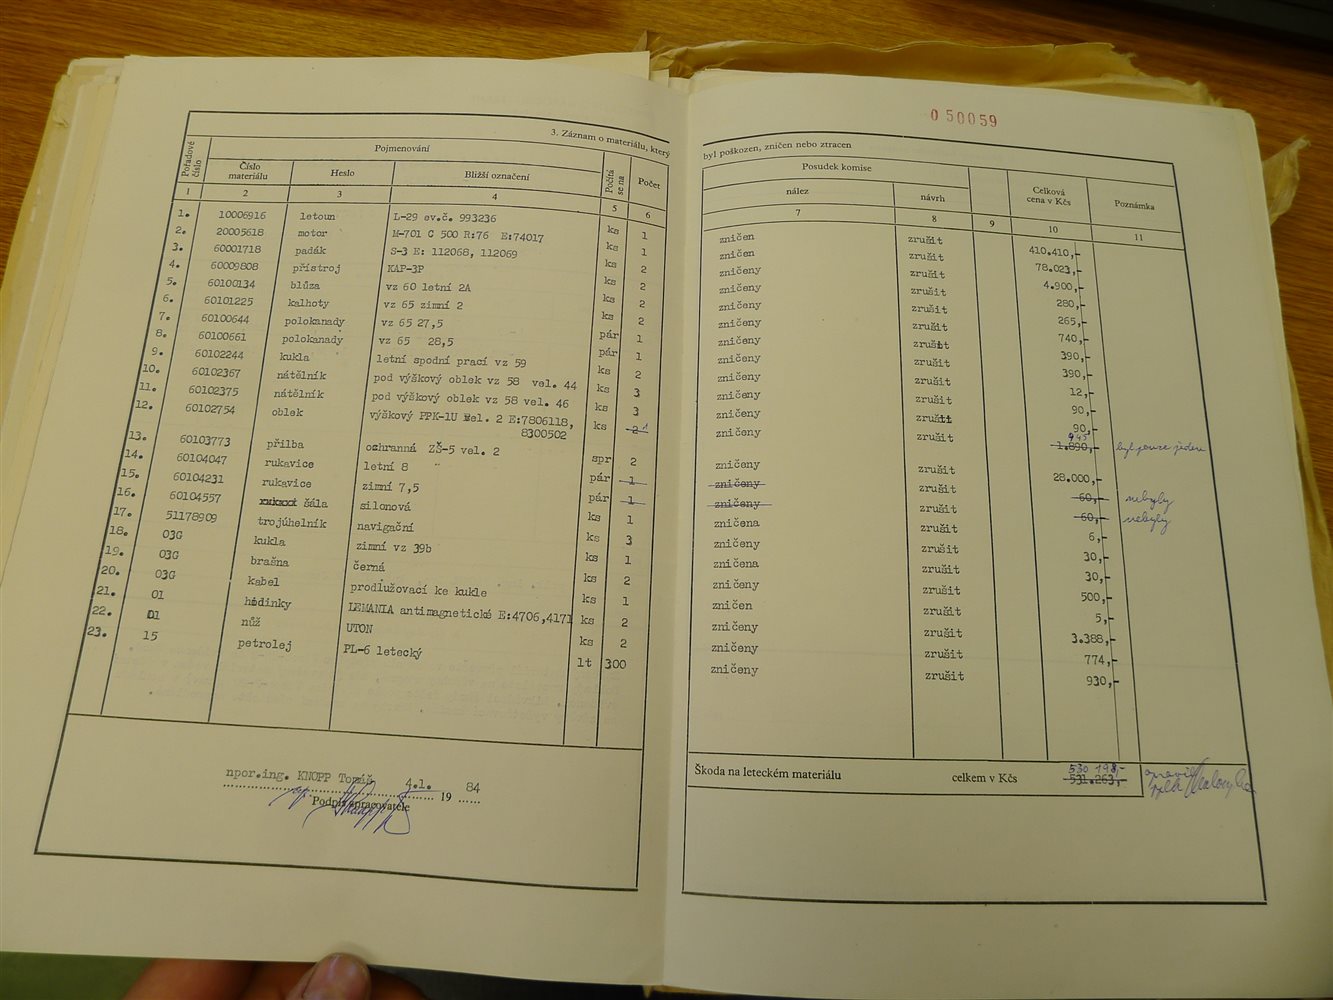 0 50059
3. Záznam o materiálu, který byl poškozen, zničen nebo ztracen
Pořadové číslo Pojmenování Počítá se na Počet Posudek komise Celková cena v Kčs Poznámka
Číslo materiálu Heslo Bližší označení nález návrh
1 2 3 4 5 6 7 8 9 10 11
1. 10006916 letoun L-29 ev.č. 993236 ks 1 zničen zrušit 410.410,-
2. 20005618 motor M-701 C 500 R:76 E:74017 ks 1 zničen zrušit 78.023,-
3. 60001718 padák S-3 E: 112068, 112069 ks 2 zničeny zrušit 4.900,-
4. 60009808 přístroj KAP-3P ks 2 zničeny zrušit 280,-
5. 60100134 blůza vz 60 letní 2A ks 2 zničeny zrušit 265,-
6. 60101225 kalhoty vz 65 zimní 2 ks 2 zničeny zrušit 740,-
7. 60100644 polokanady vz 65 27,5 pár 1 zničeny zrušit 390,-
8. 60100661 polokanady vz 65 28,5 pár 1 zničeny zrušit 390,-
9. 60102244 kukla letní spodní prací vz 59 ks 2 zničeny zrušit 12,-
10. 60102367 nátělník pod výškový oblek vz 58 vel. 44 ks 3 zničeny zrušit 90,-
11. 60102375 nátělník pod výškový oblek vz 58 vel. 46 ks 3 zničeny zrušit 90,-
12. 60102754 oblek výškový PPK-1U vel. 2 E:7806118, ks 2 1 zničeny zrušit 945 1.890,- byl pouze jeden
8300502
13. 60103773 přilba ochranná ZŠ-5 vel. 2 spr 2 zničeny zrušit 28.000,-
14. 60104047 rukavice letní 8 pár 1 zničeny zrušit 60,- nebyly
15. 60104231 rukavice zimní 7,5 pár 1 zničeny zrušit 60,- nebyly
16. 60104557 šála silonová ks 1 zničena zrušit 6,-
17. 51178909 trojúhelník navigační ks 3 zničeny zrušit 30,-
18. 03G kukla zimní vz 39b ks 1 zničena zrušit 30,-
19. 03G brašna černá ks 2 zničeny zrušit 500,-
20. 03G kabel prodlužovací ke kukle ks 1 zničen zrušit 5,-
21. 01 hodinky LEMANIA antimagnetické E:4706,4171 ks 2 zničeny zrušit 3.388,-
22. 01 nůž UTON ks 2 zničeny zrušit 774,-
23. 15 petrolej PL-6 letecký lt 300 zničeny zrušit 930,-
Škoda na leteckém materiálu celkem v Kčs 530 198,- 531.263,- opravil
npor.ing. KNOPP Tomáš 4.1. 19 84
Podpis zpracovatele